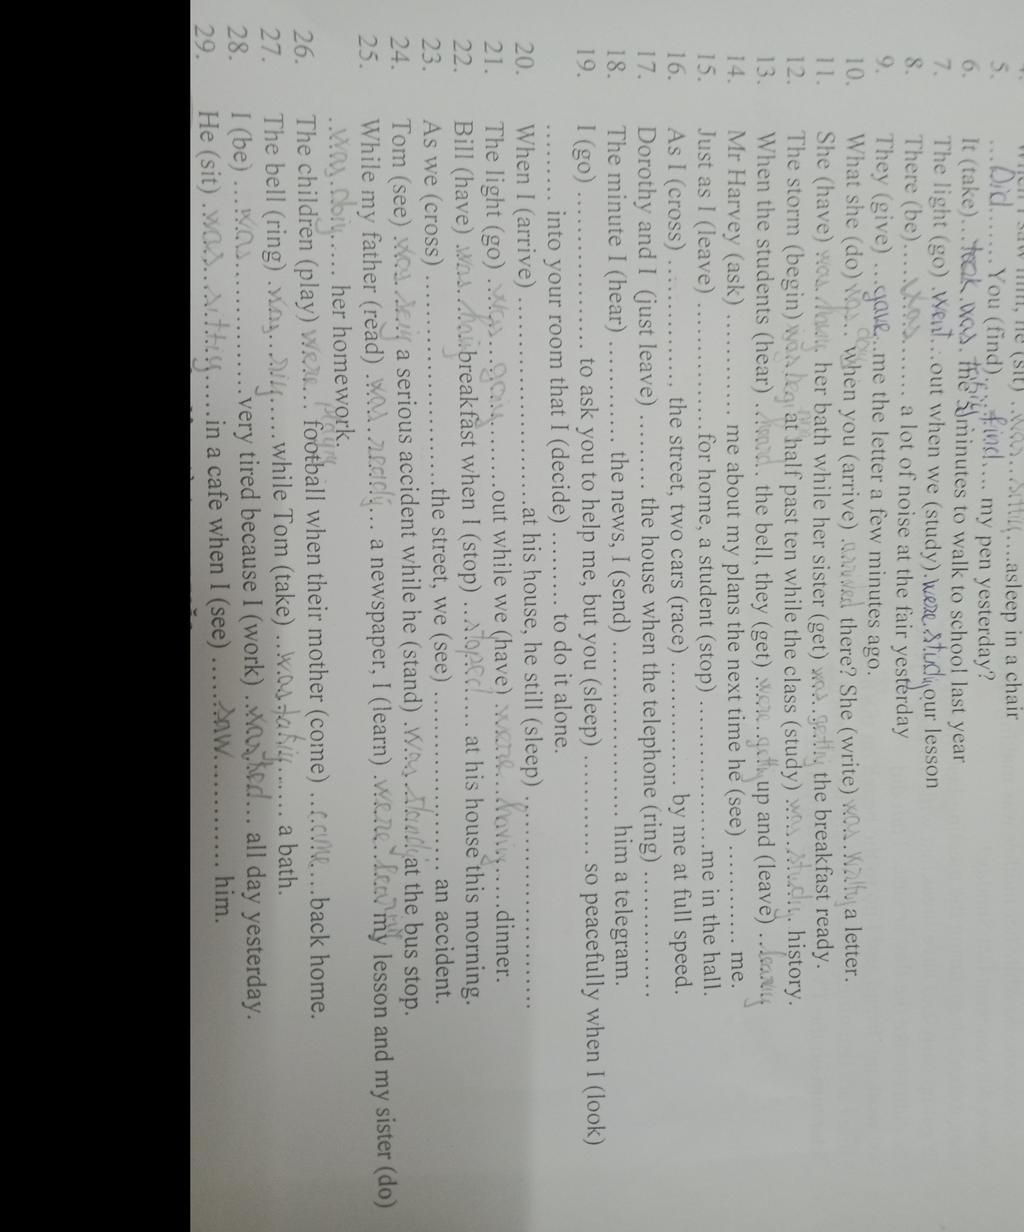 (sit) was sitting....asleep in a chair
5. ...Did...... You (find)...find.... my pen yesterday?
6. It (take)...took was. the minutes to walk to school last year
7. The light (go) .went...out when we (study).were.study our lesson
8. There (be)....was...... a lot of noise at the fair yesterday
9. They (give) ...gave...me the letter a few minutes ago.
10. What she (do) was.. when you (arrive) .arrived there? She (write) was.. a letter.
11. She (have) was.having. her bath while her sister (get) was..getting the breakfast ready.
12. The storm (begin) was at half past ten while the class (study) was..study.. history.
13. When the students (hear) .heard.. the bell, they (get) .were.. up and (leave) ..leaving
14. Mr Harvey (ask) ........... me about my plans the next time he (see) ........... me.
15. Just as I (leave) ................for home, a student (stop) ....................me in the hall.
16. As I (cross) ............ the street, two cars (race) ............. by me at full speed.
17. Dorothy and I (just leave) ........ the house when the telephone (ring) .............
18. The minute I (hear) ........... the news, I (send) ...................... him a telegram.
19. I (go) .................. to ask you to help me, but you (sleep) .......... so peacefully when I (look)
......... into your room that I (decide) ......... to do it alone.
20. When I (arrive) .......................at his house, he still (sleep) .........................
21. The light (go) .was...going........out while we (have) .were...having.....dinner.
22. Bill (have) .was.having breakfast when I (stop) ...stoped..... at his house this morning.
23. As we (cross) ........................the street, we (see) ..................... an accident.
24. Tom (see) was a serious accident while he (stand) .was.standing at the bus stop.
25. While my father (read) .was.reading... a newspaper, I (learn) .were.. my lesson and my sister (do)
..was.doing..... her homework.
26. The children (play) were... playing football when their mother (come) ..came...back home.
27. The bell (ring) was.....while Tom (take) ..was.taking...... a bath.
28. I (be) ...was..............very tired because I (work) ..worked... all day yesterday.
29. He (sit) .was...sitting.....in a cafe when I (see) ......saw............ him.